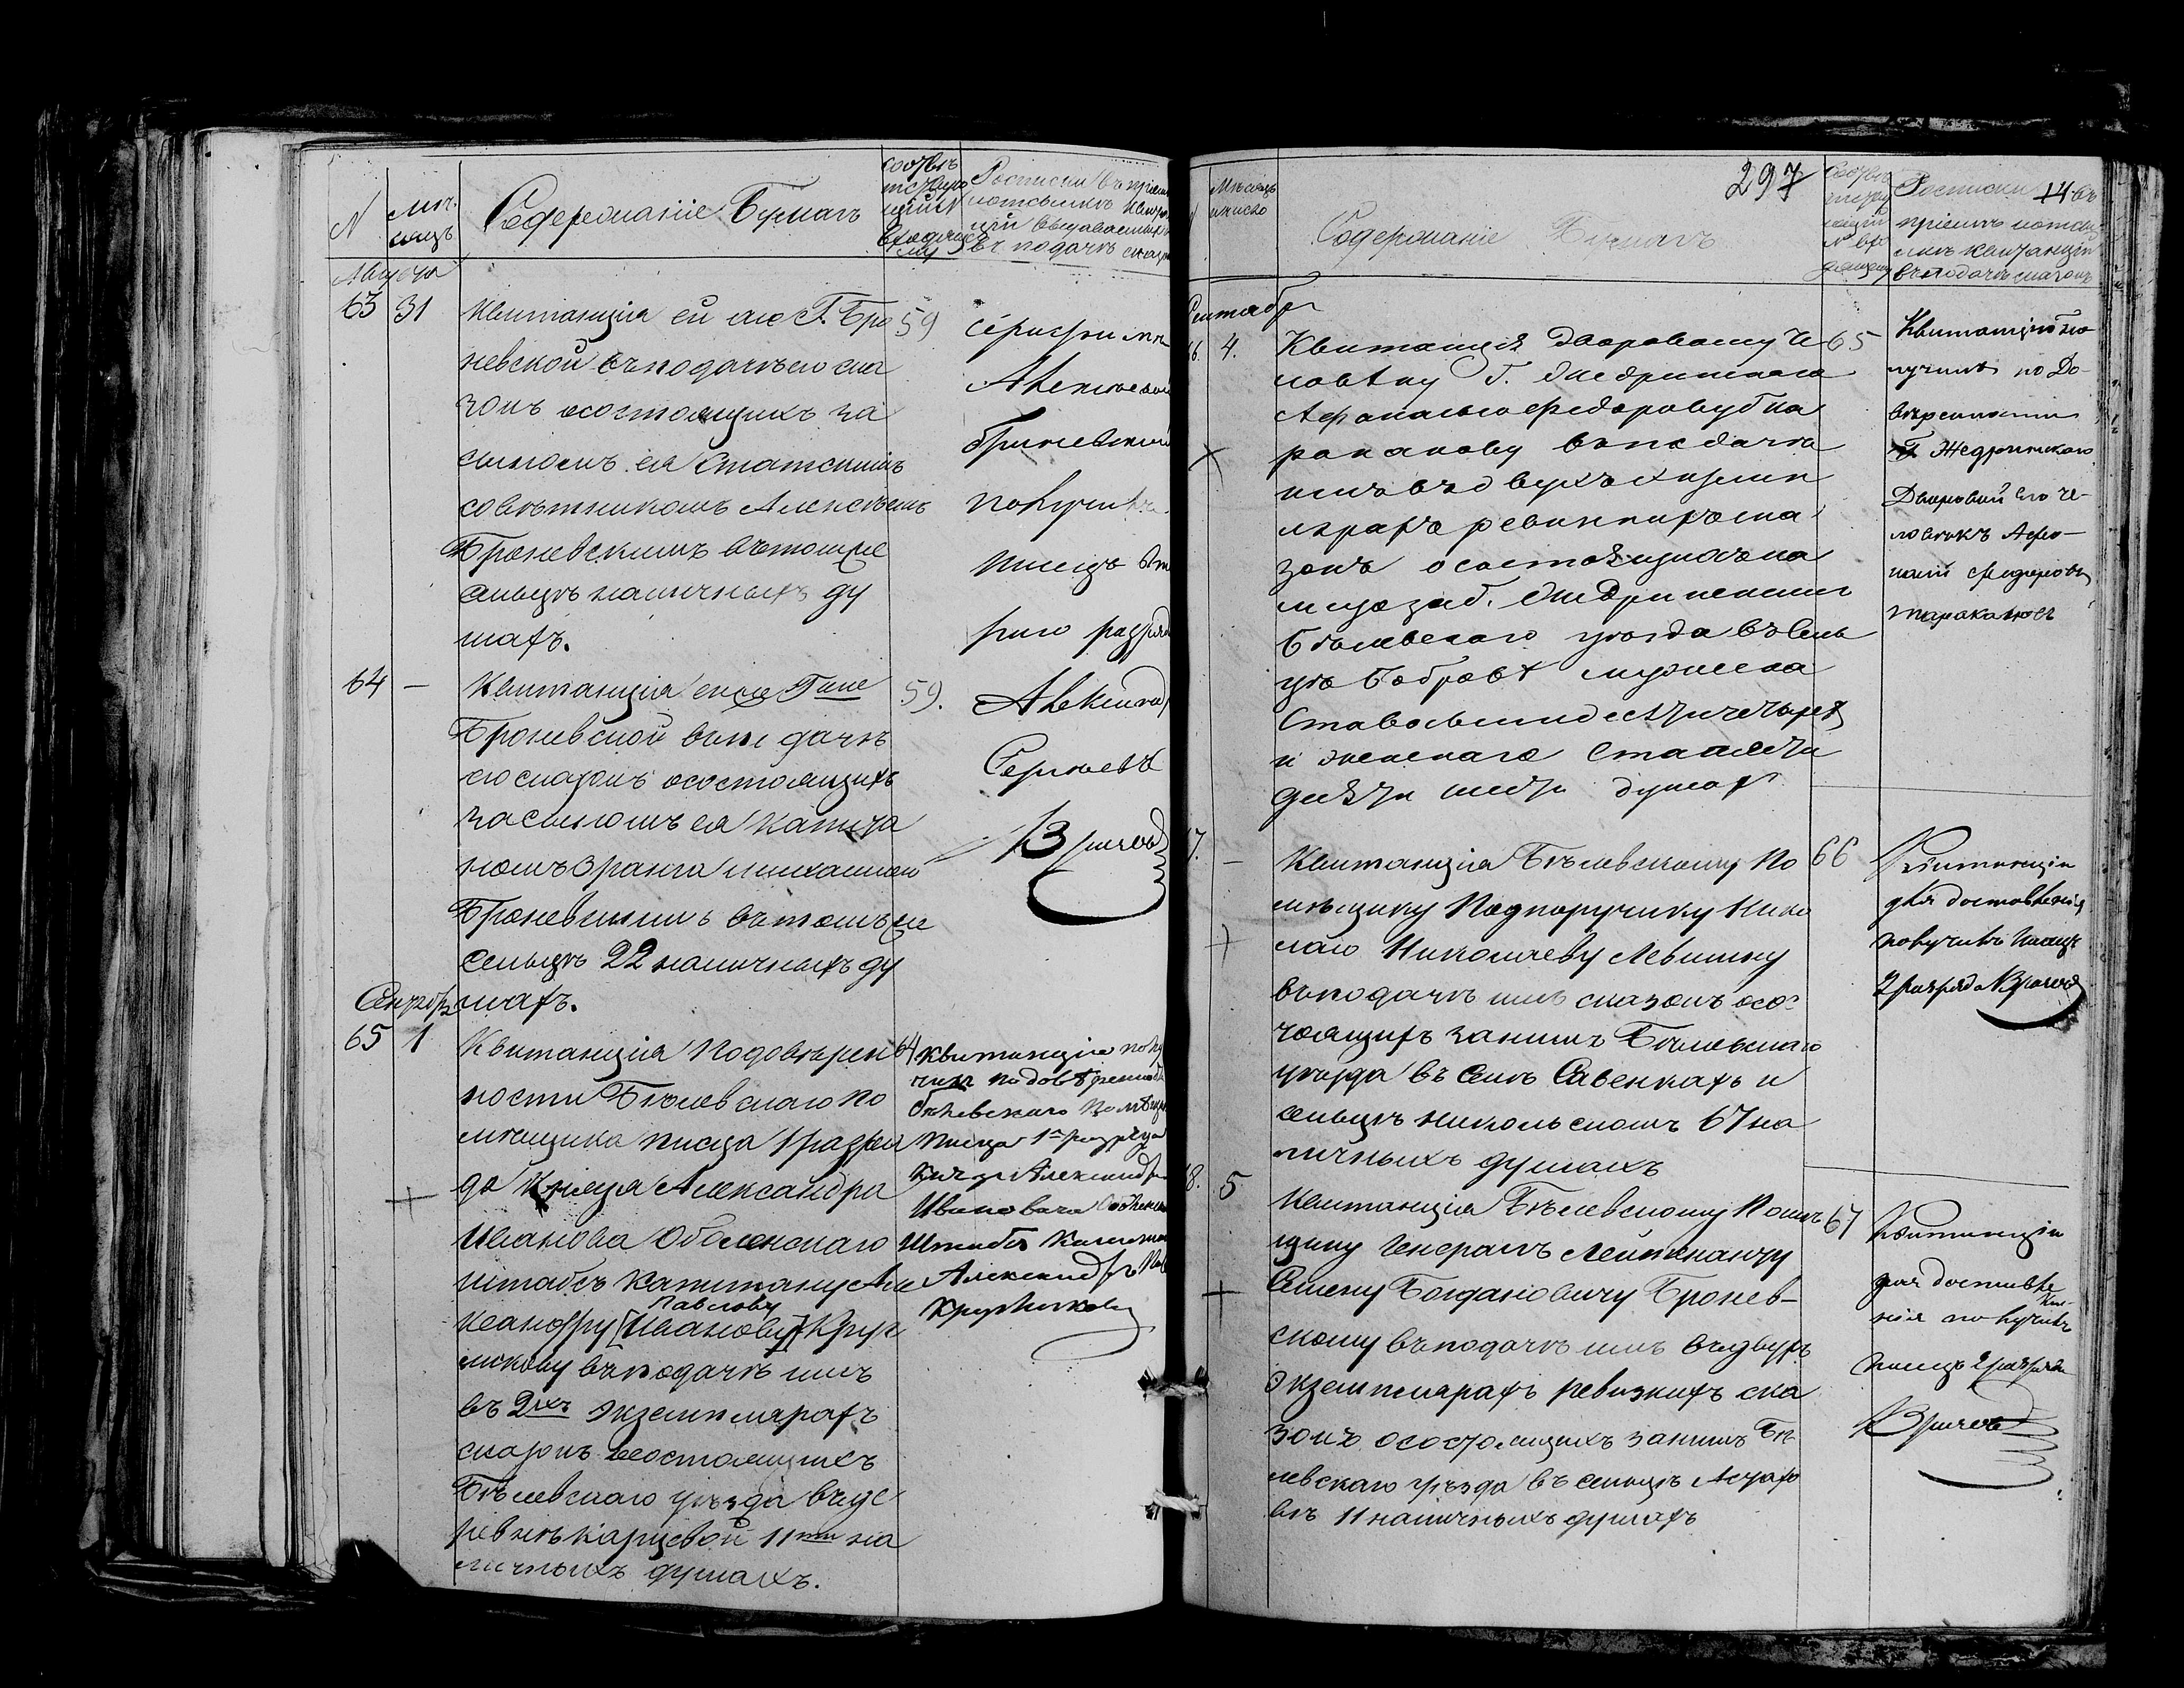 N
мѣ-
сяцъ
Содержаніе Бумагъ
соотвѣт
ствую
щій N
входяще
му
Росписки въ пріемѣ
Августа
63
31
Квитанція ей же Г. Бро
невской въ подачѣ ею ска
зокъ о состоящихъ за
сыномъ ея Статскимъ
совѣтникомъ Алексѣемъ
Броневскимъ въ томъ же
сельцѣ наличныхъ ду
шахъ.
59
получилъ
писецъ
64
—
Квитанція ей же Гже
Броневской въ подачѣ
ею сказокъ о состоящихъ
за сыномъ ея капита
номъ 2 ранга Михаиломъ
Броневскимъ въ томъ же
сельцѣ 22 наличныхъ ду
шахъ.
59.
Сергѣевъ
Сентябрь
65
1
Квитанція по довѣрен
ности Бѣлевскаго по
мѣщика писца 1 разря
да Князя Александра
Иванова Оболенскаго
штабсъ капитану Але
Павлову
ксандру [Иванову] Круг
ликову въ подачѣ имъ
въ 2хъ экземплярахъ
сказокъ о состоящихъ
Бѣлевскаго уѣзда въ де
ревнѣ Карцевой 11ти на
личныхъ душахъ.
64
квитанцію полу
чилъ по довѣренно
Бѣлевскаго помѣщи
писца 1го разряда
князя Александра
Ивановича Оболенск
Штабсъ Капитан
Александръ
Кругликовъ
297
14
Мѣсяцъ
и число
Содержаніе Бумагъ
Росписки въ
пріемѣ
квитанцій
въ подачѣ сказокъ
Сентября
66.
4.
Квитанція дворовому че
ловѣку Г. Жедринскаго
Афанасью Федорову Та
раканову въ подачѣ
имъ въ двухъ экземп
лярахъ ревизкихъ ска
зокъ о состоящихъ на
лицо за Г. Жедринскимъ
Бѣлевскаго уѣзда въ Сель
цѣ Бобровѣ мужеска
Ста восьмидесяти четырехъ
и женскаго Ста
десяти душах
65
Квитанцію по-
лучилъ по До-
вѣренности
Г. Жедринскаго
Дворовый его че-
ловѣкъ Афа-
насій Федоровъ
Таракановъ
7.
—
Квитанція Бѣлевскому По
мѣщику Подпоручику Нико
лаю Николаеву Левшину
въ подачѣ имъ сказокъ о со
стоящихъ за нимъ Бѣлевскаго
уѣзда въ Селѣ Савенкахъ и
сельцѣ Никольскомъ 67 на
личныхъ душахъ
66
Квитанцію
для доставленія
получилъ писецъ
2 разряда
8.
5
Квитанція Бѣлевскому Помѣ
щику Генералъ Лейтенанту
Семену Богдановичу Бронев-
скому въ подачѣ имъ въ двухъ
экземплярахъ ревизкихъ ска
зокъ о состоящихъ за нимъ Бѣ
левскаго уѣзда въ сельцѣ Астафь
евѣ 11 наличныхъ душахъ
67
Квитанцію
для доставле
нія получилъ
писецъ 2 разряда